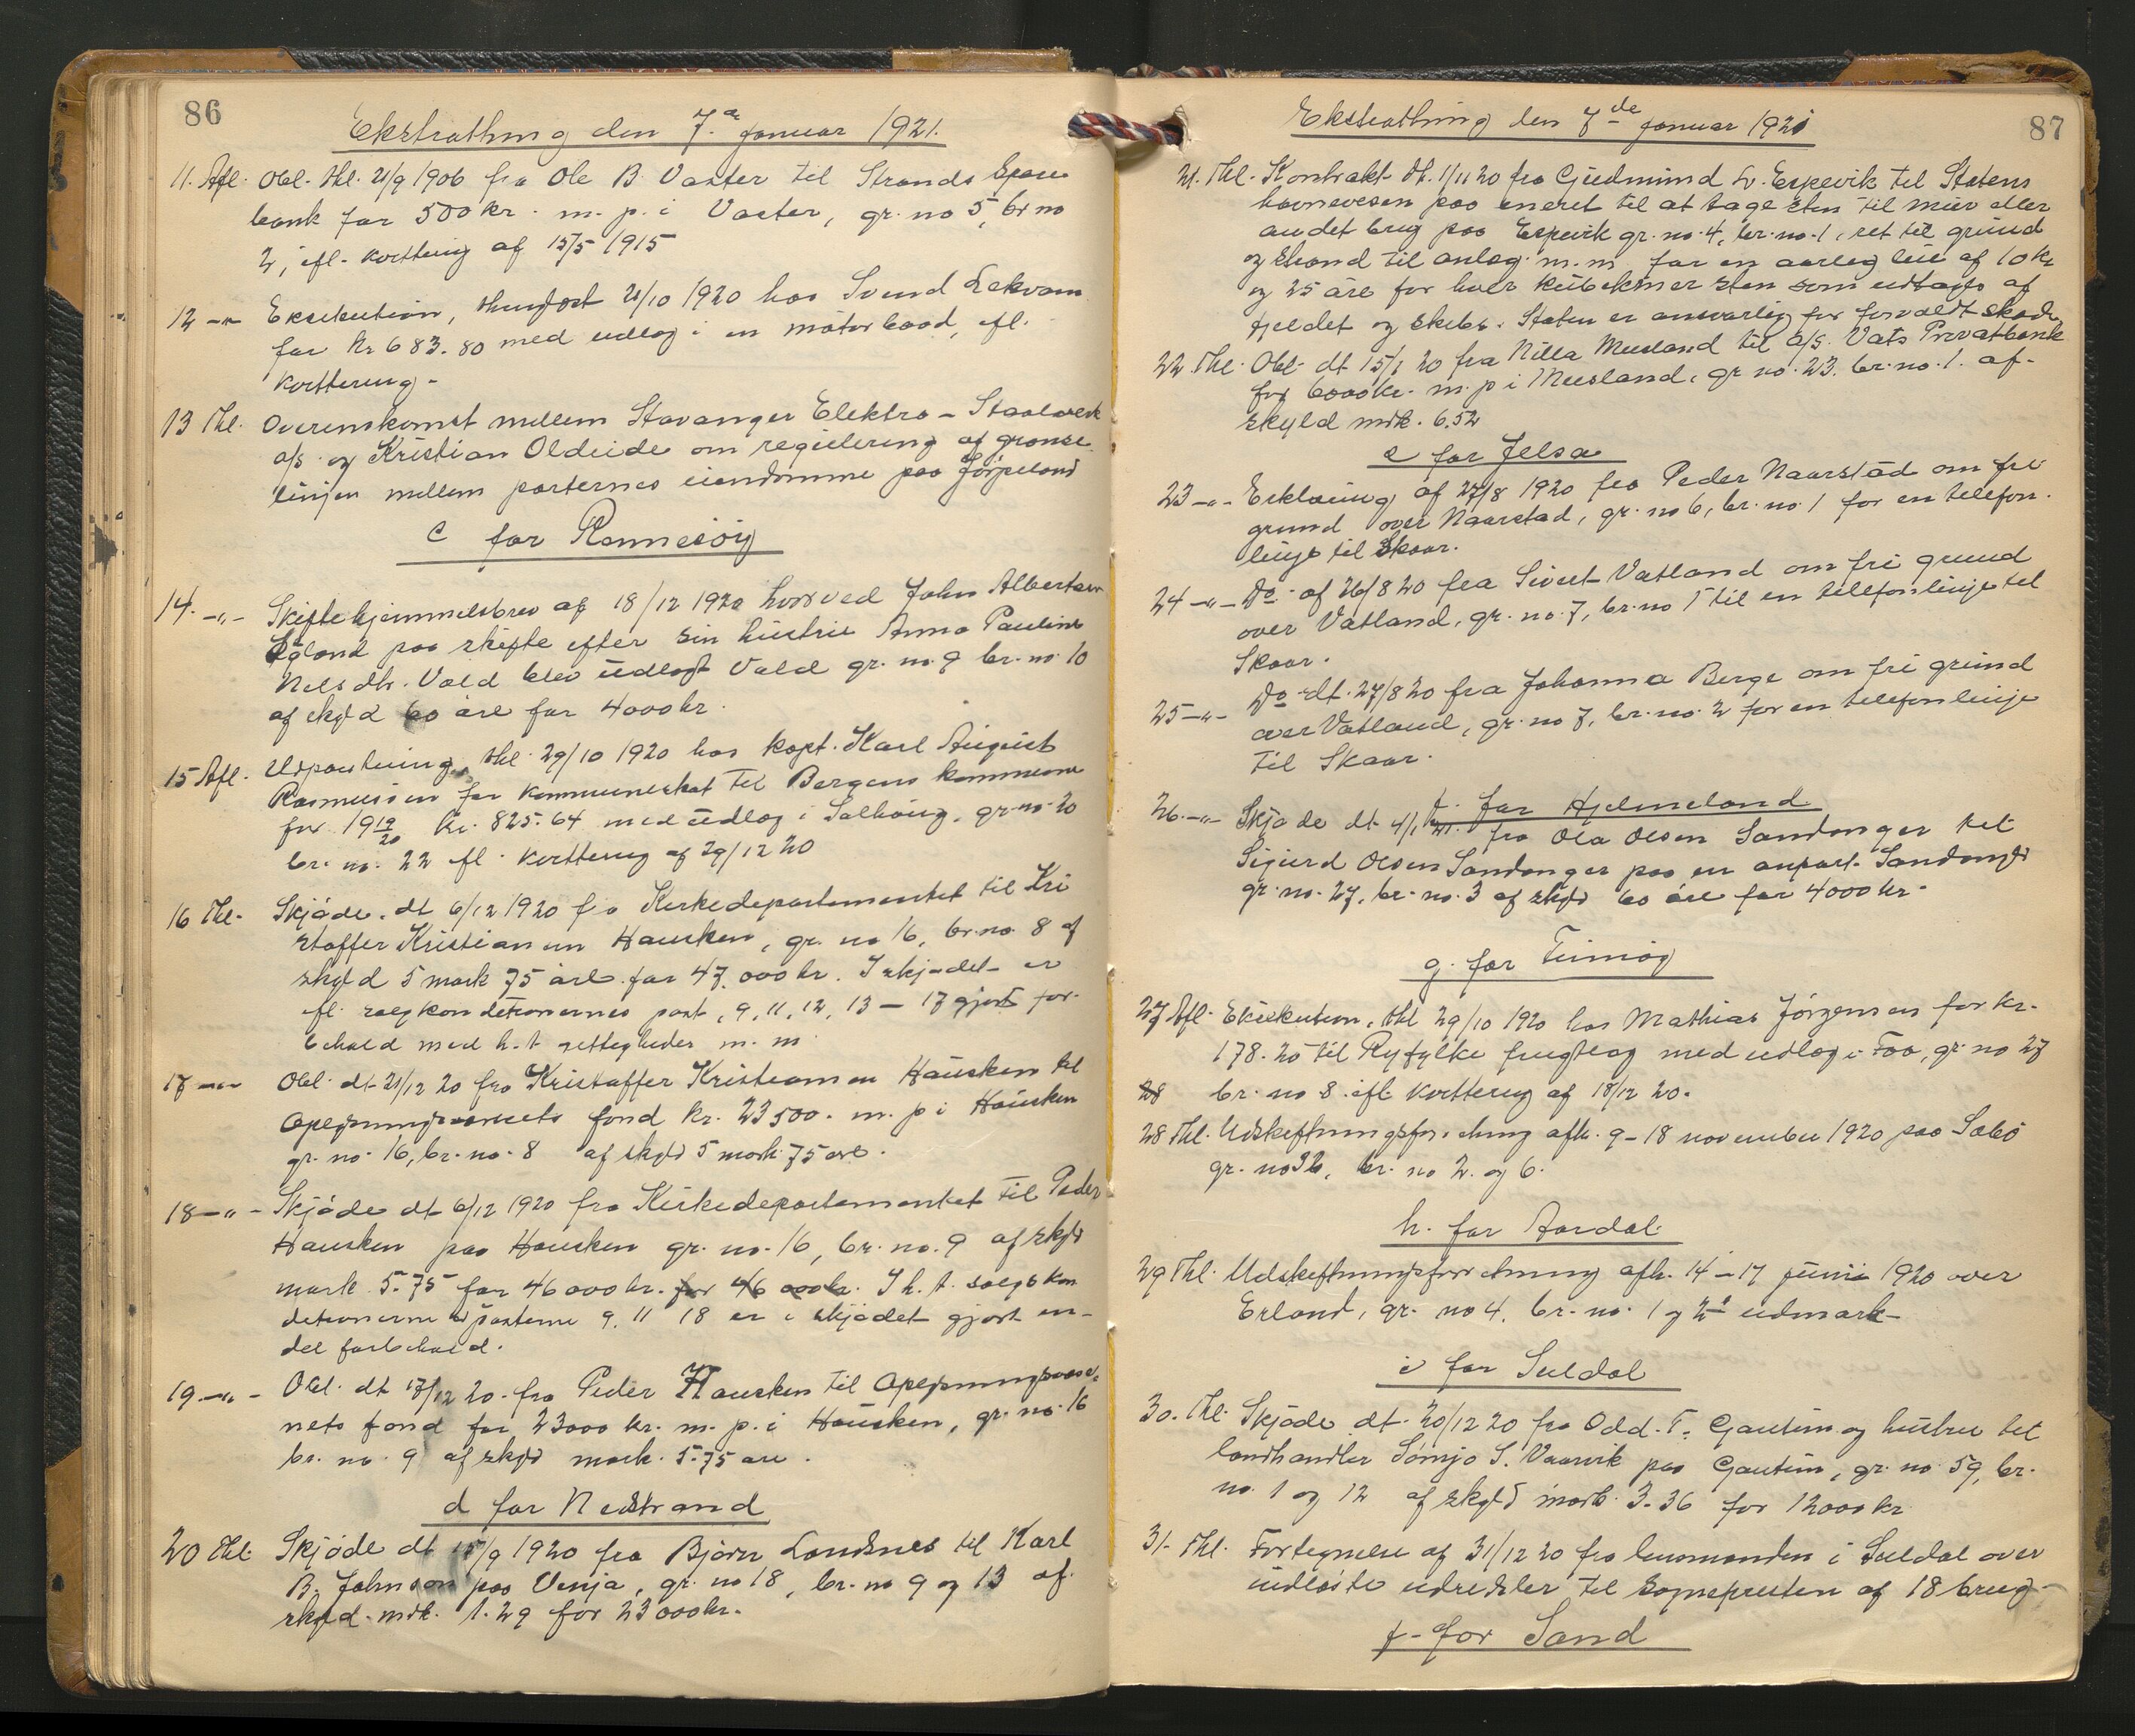 86
Ekstrathing den 7.de januar 1921.
11. Afl. Obl. thl. 21/9 1906 fra Ole B. Vaster til Strands Spare
bank for 500 kr. m. p. i Vaster, gr. no 5, br no
2, ifl. kvittering af 15/5 1915
12 -"- Eksekution, thinglyst 21/10 1920 hos Svend Lekvam
for kr 683.80 med udlog i en motorbaad, ifl.
kvittering.
13 Thl. Overenskomst mellem Stavanger Elektro-Staalverk
a/s og Kristian Oldeide om regulering af grænse
linjen mellem parternes eiendomme paa Jørpeland
c for Rennesøy
14. -"- Skiftehjemmelsbrev af 18/12 1920 hvorved John Albertsen
Øgland paa skifte efter sin hustru Anna Pauline
Nelsdtr. Vold blev udlagt Vold gr. no. 9 br. no. 10
af skyld 60 øre for 4000 kr.
15 Afl. Udpantning, thl. 29/10 1920 hos kapt. Karl August
Rasmussen for kommuneskat til Bergens kommune
for 19 19/20 kr. 825.64 med udlog i Salhøug, gr. no. 20
br. no. 22 ifl. kvittering af 29/12 20
16 Thl. Skjøde, dt 6/12 1920 fra Kirkedepartementet til Kri
stoffer Kristiansen Hausken, gr. no 16, br. no. 8 af
skyld 5 mark 75 øre for 47.000 kr. I skjødet er
ifl. salgskonditionernes post, 9, 11, 12, 13 - 17 gjort for-
behold med h.t. rettigheder m. m.
17 -"- Obl. dt 21/12 20 fra Kristoffer Kristiansen Hausken til
Oplysningsvæsenets fond kr. 23500. m. p. i Hausken
gr. no. 16, br. no. 8 af skyld 5 mark 75 øre.
18 -"- Skjøde dt 6/12 1920 fra Kirkedepartementet til Peder
Hausken paa Hausken gr. no. 16, br. no. 9 af skyld
mark 5.75 for 46000 kr. for 46 000 kr. I h. t. salgskon
ditionerne posterne 9, 11 18 er i skjødet gjort en-
del forbehold.
19. -"- Obl. dt 17/12 20. fra Peder Hausken til Oplysningsvæse-
nets fond for 23000 kr. m. p. i Hausken, gr. no. 16
br. no. 9 af skyld mark. 5.75 øre.
d for Nedstrand
20 Thl. Skjøde dt 15/9 1920 fra Bjørn Landsnes til Karl
B. Johnson paa Vinja, gr. no 18, br. no 9 og 13 af
skyld. mrk. 1.29 for 23000 kr.
87
Ekstrathing den 7de januar 1921
21. Thl. Kontrakt dt. 1/11 20 fra Gudmund L. Espevik til Statens
havnevesen paa eneret til at tage sten til mur eller
andet brug paa Espevik gr. no. 4, br. no. 1, ret til grund
og strand til anlæg m. m. for en aarlig leie af 10 kr
og 25 øre for hver kubikmer sten som udtages af
fjeldet og skibes. Staten er ansvarlig for forvoldt skade
22. Thl. Obl. dt 15/1 20 fra Nilla Musland til a/s. Vats Privatbank
for 6000 kr. m. p. i Musland, gr no. 23. br. no. 1. af-
skyld mrk. 6.52
e for Jelsa
23 -"- Erklæring af 27/8 1920 fra Peder Naarstad om fri
grund over Naarstad, gr. no 6, br. no. 1 for en telefon.
linje til Skaar.
24 -"- Do. af 26/8 20 fra Sivert Vatland om fri grund
over Vatland, gr. no. 7, br. no 1 til en telefonlinje til
Skaar.
25 -"- Do dt. 27/8 20 fra Johanna Berge om fri grund
over Vatland, gr. no 7, br. no. 2 for en telefonlinje
til Skaar.
f. for Hjelmeland
26. -"- Skjøde dt 4/1 21. fra Ola Olsen Sandanger til
Sigurd Olsen Sandanger paa en anpart Sandanger
gr. no. 27, br. no. 3 af skyld 60 øre for 4000 kr.
g. for Finnøy
27 Afl. Eksekution, thl 29/10 1920 hos Mathias Jørgensen for kr.
178.20 til Ryfylke frugtlag med udlog i Foo, gr. no 27
28 br. no 8. ifl kvittering af 18/12 20.
28 Thl. Udskiftningsforretning afh. 9-18 november 1920 paa Sæbø
gr. no 36, br. no 2. og 6.
h. for Aardal
29 Thl. Udskiftningsforretning afh. 14-17 juni 1920 over
Erland, gr. no 4, br. no. 1 og 2's udmark
i for Suldal
30. Thl. Skjøde dt. 20/12 20 fra Odd. T. Gautun og hustru til
landhandler Sømjo S. Vaarvik paa Gautun, gr. no 59, br.
no. 1 og 12 af skyld mark 3.36 for 12000 kr
31. Thl. Fortegnelse af 31/12 20 fra lensmanden i Suldal over
indløste udredsler til Sognepresten af 18 brug.
j. for Sand